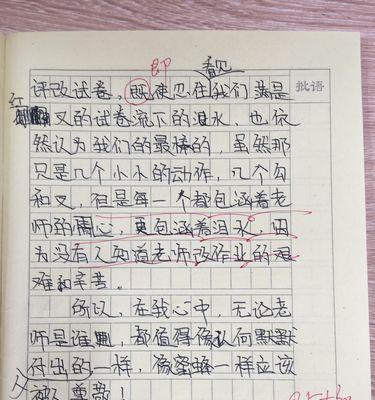 即
看见
评改试卷，既使忍住我们满是
批语
红
叉的试卷流下的泪水，也依
然认为我们的最棒的，虽然那
只是几个小小的动作，几个勾
和叉，但是每一个都包涵着老
师的用心，更包涵着泪水，因
为没有人知道老师改作业的艰
难和辛苦。
所以，在我心中，无论老
师是谁，都值得像以何默默
付出的一样，像蜜蜂一样应该
被人尊敬！